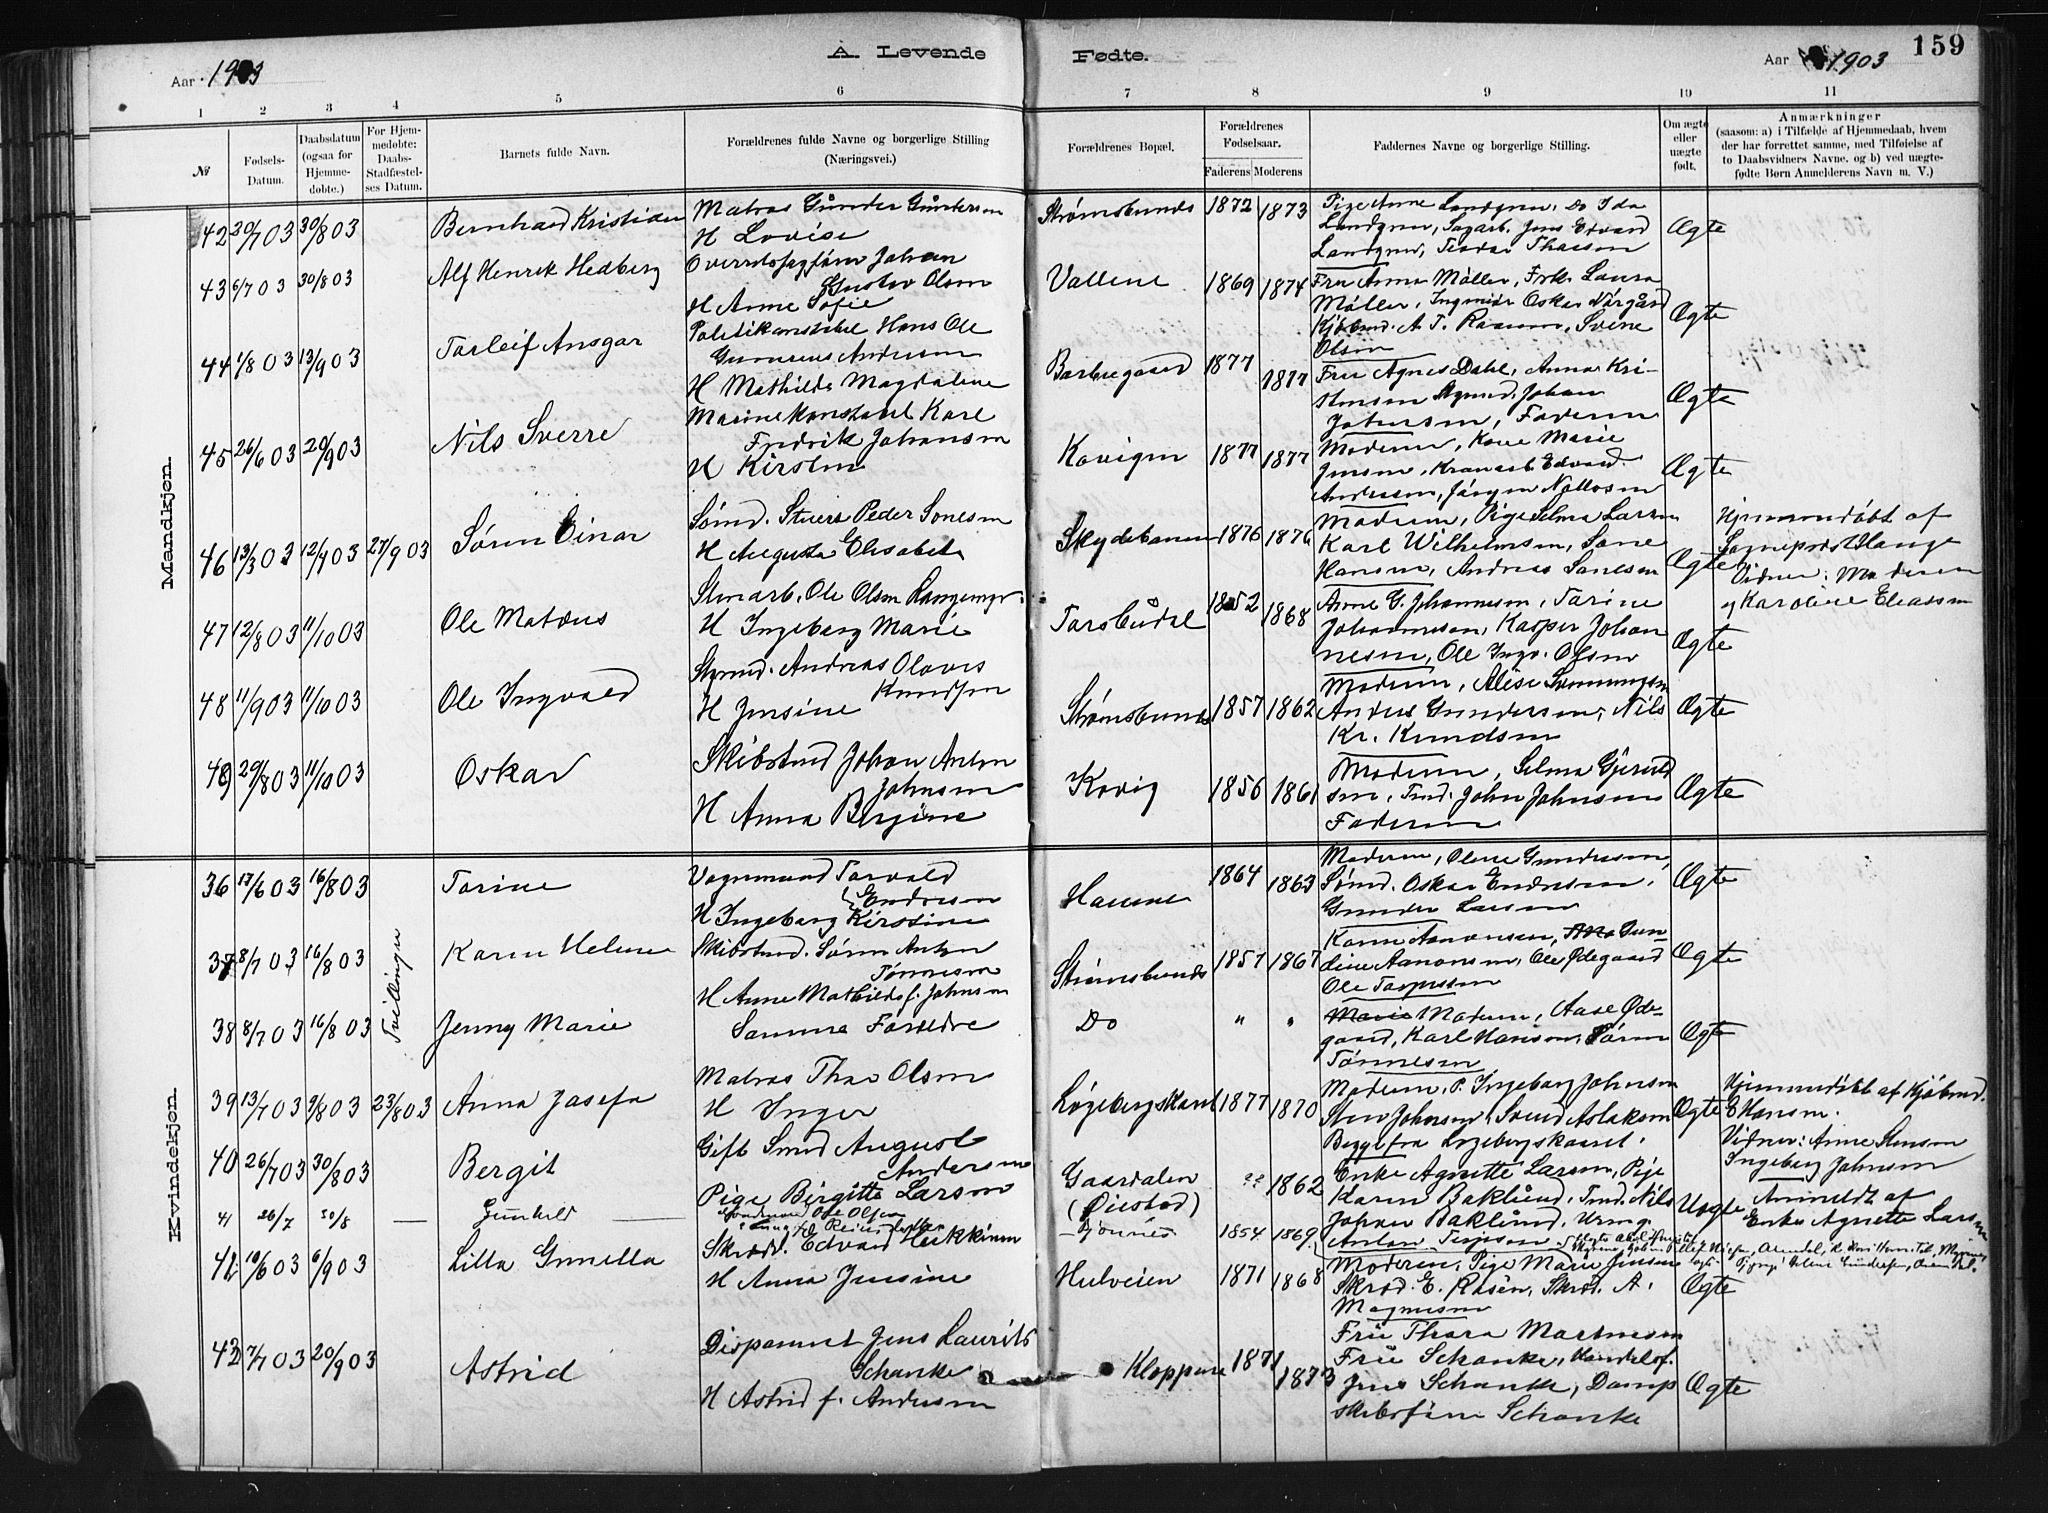 A. Levende Fødte.
Aar 1903
Aar 1903
159
1 2 3 4 5 6 7 8 9 10 11
№
Fødsels-Datum.
Daabsdatum (ogsaa for Hjemmedøbte.)
For Hjemmedøbte: Daabs-Stadfæstelses Datum.
Barnets fulde Navn.
Forældrenes fulde Navne og borgerlige Stilling (Næringsvei.)
Forældrenes Bopæl.
Forældrenes Fødselsaar.
Faderens Moderens
Faddernes Navne og borgerlige Stilling.
Om ægte eller uægte født.
Anmærkninger
(saasom: a) i Tilfælde af Hjemmedaab, hvem der har forrettet samme, med Tilføielse af to Daabsvidners Navne. og b) ved uægtefødte Børn Anmelderens Navn m. V.)
Mandkjøn.
42 20/7 03 30/8 03 Bernhard Kristian
Matros Gunder Gundersen
H Lovise
Strømsbunds 1872 1873
Pige Anne Landgren, Do Ida
Landgren, Sagarb. Jens Edvard
Landgren, Teodor
Ægte
43 6/7 03 30/8 03 Alf Henrik Hedberg
Johan
Gustav Olsen
H Anne Sofie
Vallene 1869 1874
Fru Anna Møller, Frk. Laura
Møller, Oskar Nørgård
Kjøbmd. A. T. Sverre
Olsen
Ægte
44 1/8 03 13/9 03 Torleif Ansgar
Politikonstabel Hans Ole
Andersen
H Mathilde Magdalene
Barbregaard 1877 1877
Fru Agnes Dahl, Anna Kri-
stensen Styrmd. Johan
Johnsen, Faderen
Ægte
45 26/6 03 20/9 03 Nils Sverre
Marinekonstabel Karl
Fredrik Johansen
H Kirsten
Kovigen 1877 1877
Moderen, Kone Marie
Jensen, Kranarb. Edvard
Andersen, Jørgen
Ægte
46 13/3 03 12/9 03 27/9 03 Søren Einar
Sømd. Peder Sonesen
H Augusta Elisabet
Skydebanen 1876 1876
Moderen, Pige Selma Larsen
Karl Wilhelmsen, Sone
Hansen, Andreas Sonesen
Ægte
Hjemmedøbt af
Sogneprest Hange
Vidner: Moderen
og Karoline Eliassen
47 12/8 03 11/10 03 Ole Matæus
Stenarb. Ole Olsen Langemyr
H Ingeborg Marie
Torsbudal 1852 1868
Anne G. Johannesen, Torine
Johannesen, Kasper Johan
nesen, Ole Ingv. Olsen
Ægte
48 11/9 03 11/10 03 Ole Ingvald
Styrmd. Andreas Olavus
Knudsen
H Jensine
Strømsbunds 1857 1862
Moderen, Alise
Anders Gundersen, Nils
Kr. Knudsen
Ægte
49 29/8 03 11/10 03 Oskar
Skibstmd Johan Anton
Johnsen
H Anna Bergine
Kovig 1856 1861
Moderen, Selma Gjeruld
sen, Tmd. John Johnsen
Faderen
Ægte
Kvindekjøn.
36 17/6 03 16/8 03 Torine
Vognmand Torvald
Endresen
H Ingeborg Kirstine
Havene 1864 1863
Moderen, Olene Gundersen,
Sømd. Oskar Endresen,
Gunder Larsen
Ægte
Tvillinger
37 8/7 03 16/8 03 Karen Helene
Skibstmd. Søren Anton
Tønnesen
H Anne Mathilde f. Johnsen
Strømsbunds 1857 1867
Karen Aanonsen, Gun-
dine Aanonsen, Ole Ødegaard
Ole Torgersen
Ægte
38 8/7 03 16/8 03 Jenny Marie
Samme Forældre
Do " "
Marie Moderen, Aase Øde-
gaard, Karl Hansen, Søren
Tønnesen
Ægte
39 13/7 03 9/8 03 23/8 03 Anna Josefa
Matros Thor Olsen
H Inger
Løgebergskaret 1877 1870
Moderen, P. Ingeborg Johnsen
Sten Johnsen, Svend Aslaksen
Begge fra Løgebergskaret.
Ægte
Hjemmedøbt af Kjøbmd.
E Hansen.
Vidner: Anne Stensen
Ingeborg Johnsen
40 26/7 03 30/8 03 Bergit
Gift Smed August
Andersen
Pige Birgitte Larsen
Gaardalen
(Øiestad) ?? 1862
Enke Agnette Larsen, Pige
Karen Baklund, Tmd. Nils
Johan Baklund, Urmg.
Anton Terjesen
Uægte
Anmeldt af
Enke Agnette Larsen
41 26/7 30/8 — Gunhild —
Ole Olsen
Bjønnes 1854 1869
Ægte
42 10/6 03 6/9 03 Lilla Gunella
Skræd. Edvard Heikkinen
H Anna Jensine
Hulveien 1871 1868
Moderen, Pige Marie Jensen
Skræd. E. Rosén, Skræd. A.
Magnusen
Ægte
43 7/7 03 20/9 03 Astrid
Disponent Jens Laurits
Schanke
H Astrid f. Andersen
Kloppene 1871 1873
Fru Thora Mortensen
Fru Schanke, Handelsf.
Jens Schanke, Damp
skibsfører Schanke
Ægte